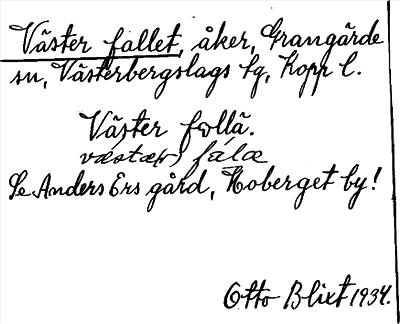 Väster fallet, åker, Grangärde
sn, Västerbergslags tg, Kopp l.
Väster follä.
væstær) fálæ
Se Anders Ers gård, Hoberget by!
Otto Blixt 1934.